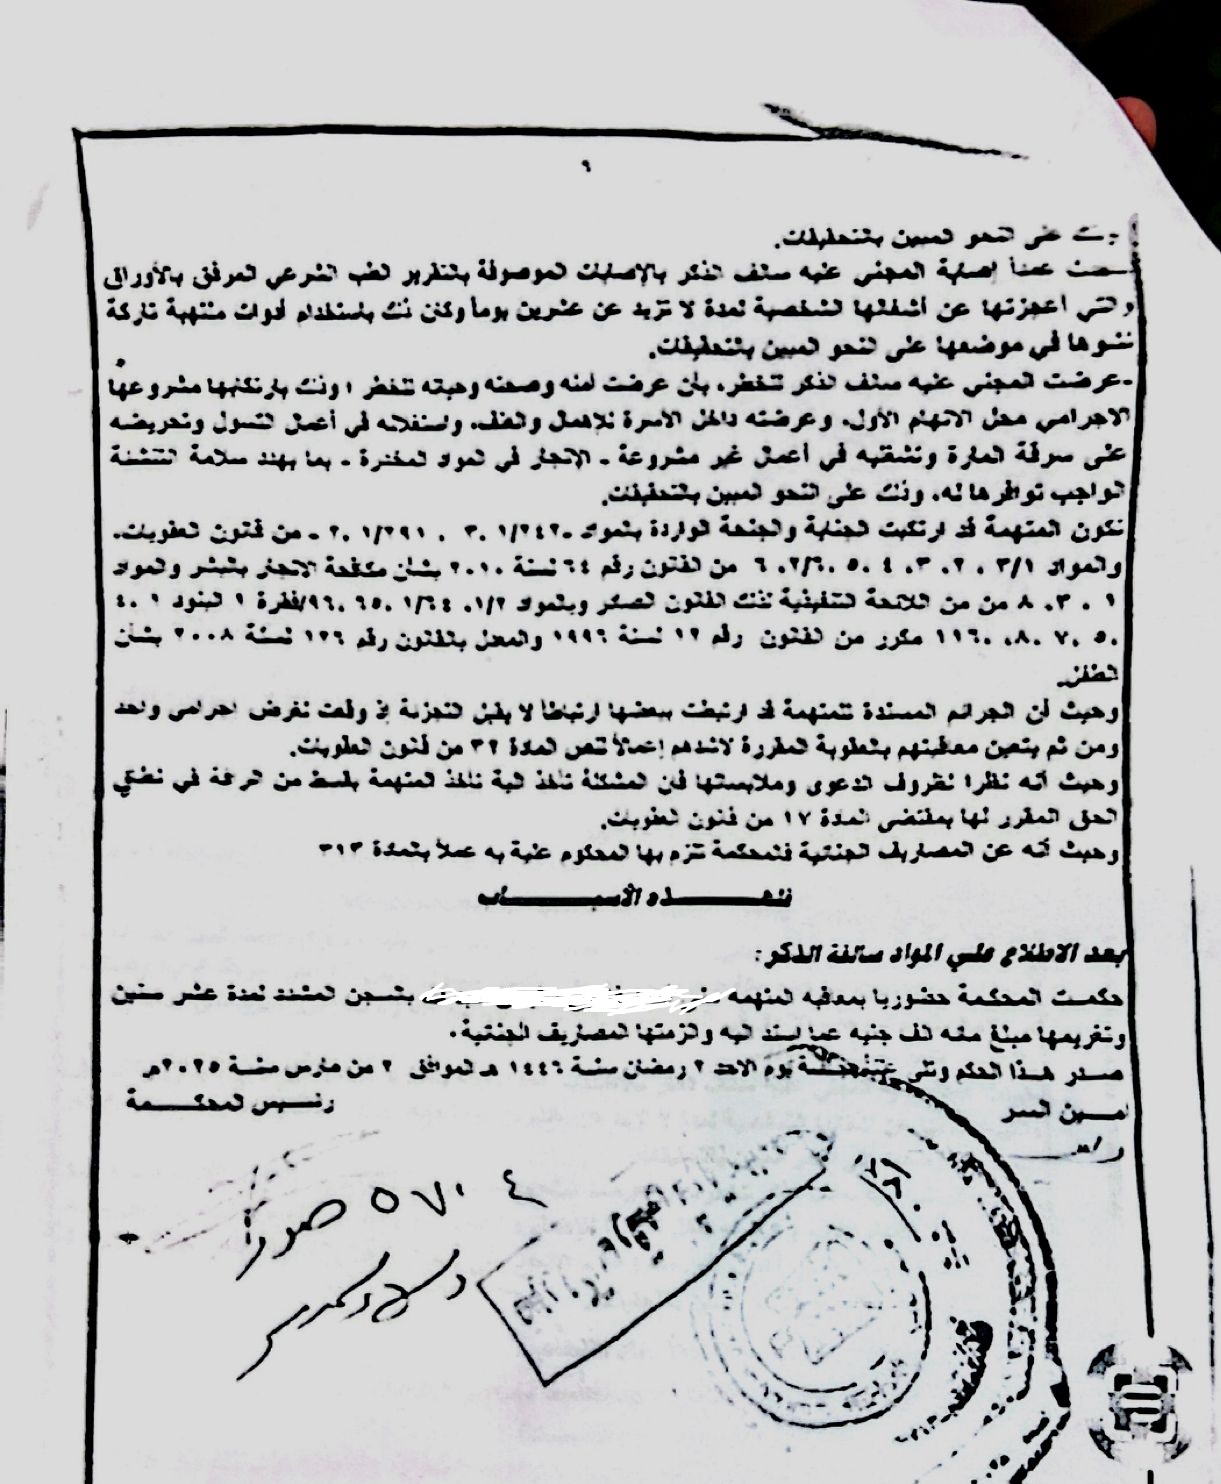 ٩
على النحو المبين بالتحقيقات.
عمداً إصابة المجني عليه سالف الذكر بالإصابات الموصوفة بتقرير الطب الشرعي المرفق بالأوراق
والتي أعجزتها عن أشغالها الشخصية لمدة لا تزيد عن عشرين يوماً وكان ذلك باستخدام أدوات ملتهبة تاركة
في موضعها على النحو المبين بالتحقيقات.
-عرضت المجني عليه سالف الذكر للخطر، بأن عرضت أمنه وصحته وحياته للخطر ؛ وذلك بارتكابها مشروعها
الاجرامي محل الاتهام الأول، وعرضته داخل الأسرة للإهمال والعنف، واستغلاله في أعمال التسول وتحريضه
على سرقة المارة وتشغيله في أعمال غير مشروعة - الإتجار في المواد المخدرة - بما يهدد سلامة التنشئة
الواجب توافرها له، وذلك على النحو المبين بالتحقيقات.
تكون المتهمة قد ارتكبت الجناية والجنحة الواردة بالمواد ١/٢٤٢، ٣ ، ١/٢٩١، ٢ - من قانون العقوبات.
والمواد ٣/١ ، ٢، ٣، ٤، ٥، ٢/٦، ٦ من القانون رقم ٦٤ لسنة ٢٠١٠ بشأن مكافحة الاتجار بالبشر والمواد
١ ، ٣، ٨ من من اللائحة التنفيذية لذلك القانون الصادر وبالمواد ١/٢، ١/٦٤، ٦٥، ٩٦/فقرة ١ البنود ١، ٤
،٥، ٧، ٨، ١١٦ مكرر من القانون رقم ١٢ لسنة ١٩٩٦ والمعدل بالقانون رقم ١٢٦ لسنة ٢٠٠٨ بشأن
الطفل.
وحيث أن الجرائم المسندة للمتهمة قد ارتبطت ببعضها ارتباطاً لا يقبل التجزئة إذ وقعت لغرض اجرامي واحد
ومن ثم يتعين معاقبتهم بالعقوبة المقررة لاشدهم إعمالاً لنص المادة ٣٢ من قانون العقوبات.
وحيث أنه نظرا لظروف الدعوى وملابستها فأن المحكمة تأخذ المتهمة بقسط من الرأفة في نطاق
الحق المقرر لها بمقتضى المادة ١٧ من قانون العقوبات.
وحيث أنه عن المصاريف الجنائية فالمحكمة تلزم بها المحكوم عليه به عملاً بالمادة ٣١٣
فلهـــــذه الأسبـــــاب
بعد الاطلاع علي المواد سالفة الذكر:
حكمت المحكمة حضوريا بمعاقبه المتهمه بالسجن المشدد لمدة عشر سنين
وتغريمها مبلغ مئه الف جنيه عما اسند اليه والزمتها المصاريف الجنائية.
صدر هذا الحكم وتلى علنا بجلسة يوم الاحد ٢ رمضان سنة ١٤٤٦ هـ الموافق ٢ من مارس سنة ٢٠٢٥م
امين السر
رئيس المحكمة